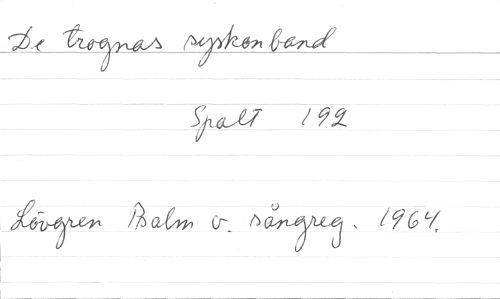 De trognas syskonband
Spalt 192
Lövgren Psalm o. sångreg. 1964.